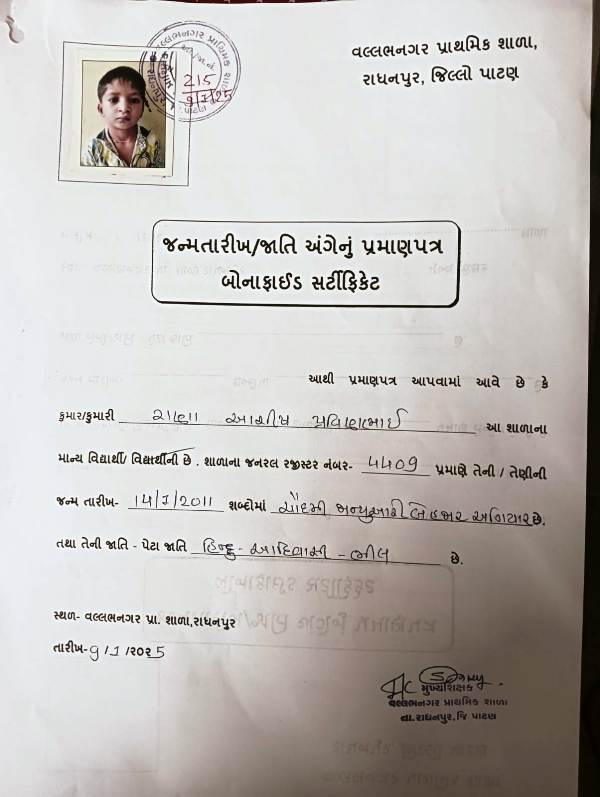 વલ્લભનગર પ્રાથમિક શાળા,
રાધનપુર, જિલ્લો પાટણ
વલ્લભનગર પ્રાથમિક શાળા
215
9/1/25
જન્મતારીખ/જાતિ અંગેનું પ્રમાણપત્ર
બોનાફાઈડ સર્ટીફિકેટ
આથી પ્રમાણપત્ર આપવામાં આવે છે કે
કુમાર/કુમારી રાણા આશીષ પ્રવિણભાઈ આ શાળાના
માન્ય વિદ્યાર્થી/ વિદ્યાર્થીની છે . શાળાના જનરલ રજીસ્ટર નંબર- 4409 પ્રમાણે તેની / તેણીની
જન્મ તારીખ- 14/1/2011 શબ્દોમાં ચૌદમી જાન્યુઆરી બે હજાર અગિયાર છે.
તથા તેની જાતિ - પેટા જાતિ હિન્દુ - આદિવાસી - ભીલ છે.
સ્થળ- વલ્લભનગર પ્રા. શાળા,રાધનપુર
તારીખ- 9/1/૨૦૨5
મુખ્યશિક્ષક
વલ્લભનગર પ્રાથમિક શાળા
તા.રાધનપુર,જિ પાટણ